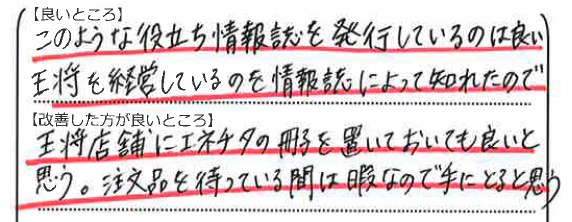 【良いところ】
このような役立ち情報誌を発行しているのは良い
王将を経営しているのを情報誌によって知れたので
【改善した方が良いところ】
王将店舗にエネチタの冊子を置いておいても良いと
思う。注文品を待っている間は暇なので手にとると思う